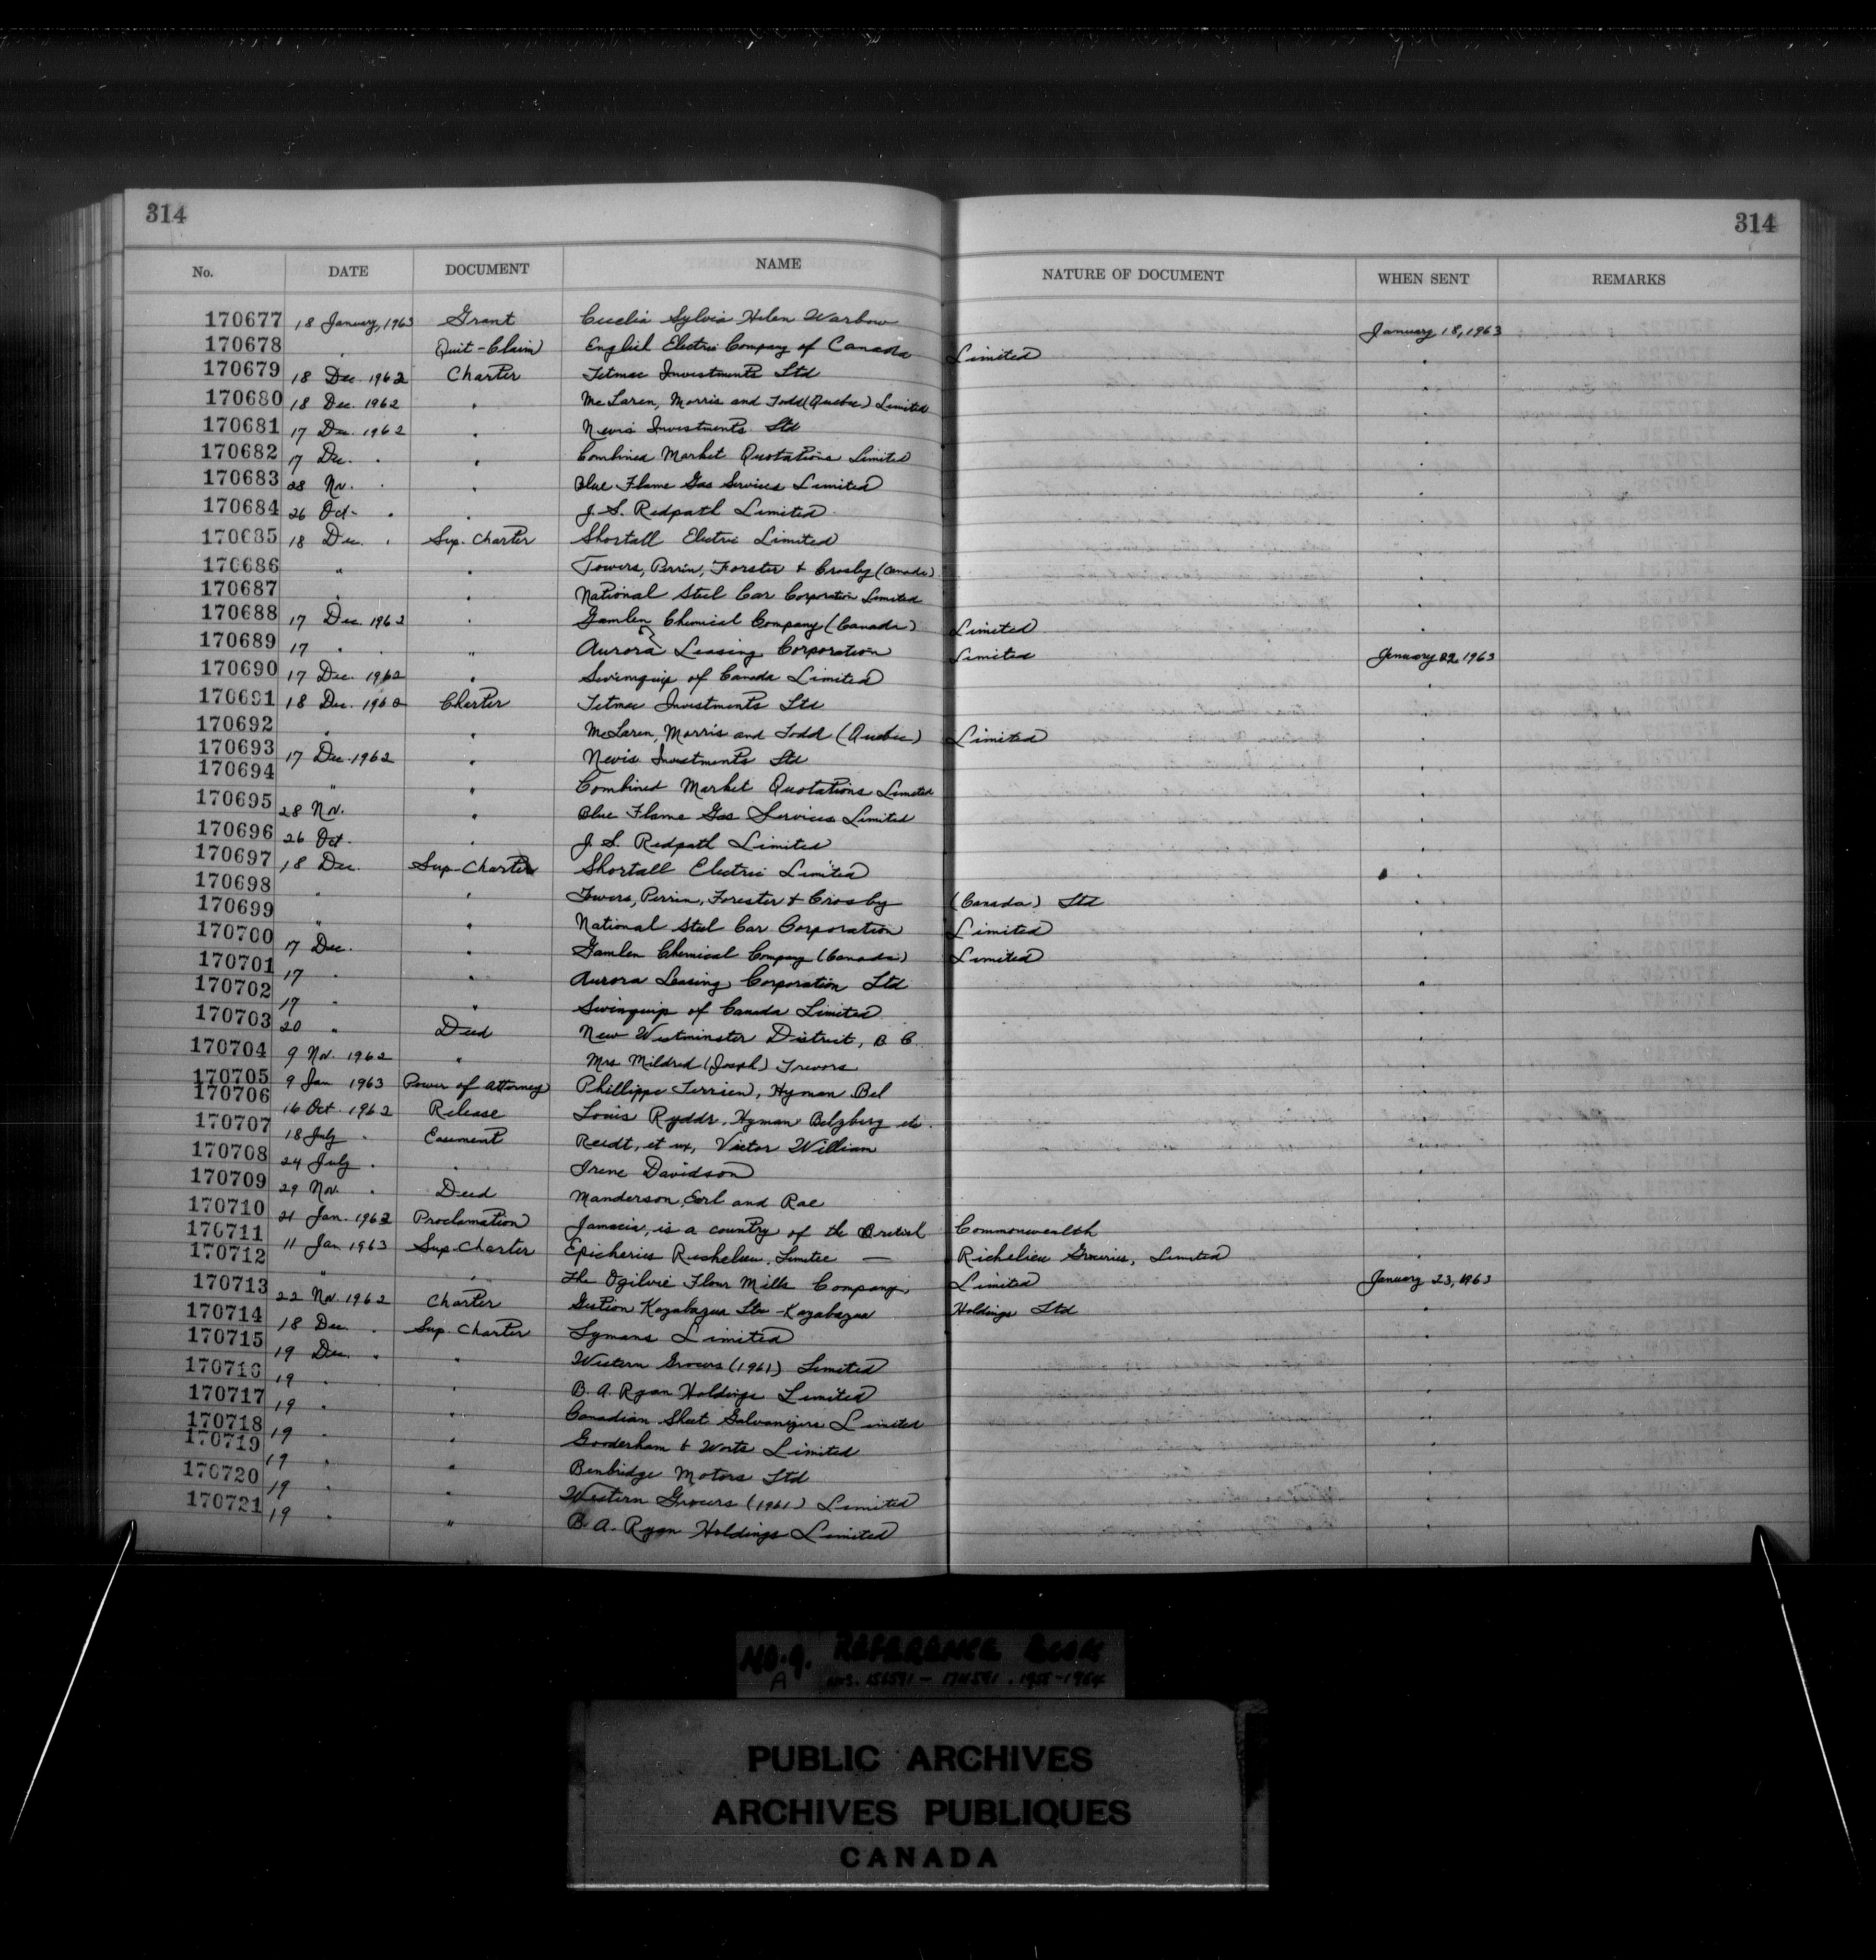 314 314
No. DATE DOCUMENT NAME NATURE OF DOCUMENT WHEN SENT REMARKS
170677 18 January, 1963 Grant Cecelia Sylvia Helen Warbow January 18, 1963
170678 " Quit-Claim English Electric Company of Canada Limited "
170679 18 Dec. 1962 Charter Tetmac Investments Ltd "
170680 18 Dec. 1962 " McLaren, Morris and Todd (Quebec) Limited "
170681 17 Dec. 1962 " Nevis Investments Ltd "
170682 17 Dec. " " Combined Market Quotations Limited "
170683 28 Nov. " " Blue Flame Gas Services Limited "
170684 26 Oct. " " J. S. Redpath Limited "
170685 18 Dec. " Sup. Charter Shortall Electric Limited "
170686 " " Towers, Perrin, Forster & Crosby (Canada) "
170687 " " National Steel Car Corporation Limited "
170688 17 Dec. 1962 " Gamlen Chemical Company (Canada) Limited "
170689 17 " " " Aurora Leasing Corporation Limited January 22, 1963
170690 17 Dec. 1962 " Swinquip of Canada Limited "
170691 18 Dec. 1962 Charter Tetmac Investments Ltd "
170692 " " McLaren, Morris and Todd (Quebec) Limited "
170693 17 Dec. 1962 " Nevis Investments Ltd "
170694 " " Combined Market Quotations Limited "
170695 28 Nov. " Blue Flame Gas Services Limited "
170696 26 Oct. " J. S. Redpath Limited "
170697 18 Dec. Sup-Charter Shortall Electric Limited "
170698 " " Towers, Perrin, Forester & Crosby (Canada) Ltd "
170699 " " National Steel Car Corporation Limited "
170700 17 Dec. " Gamlen Chemical Company (Canada) Limited "
170701 17 " " Aurora Leasing Corporation Ltd "
170702 17 " " Swinquip of Canada Limited "
170703 20 " Deed New Westminster District, B C. "
170704 9 Nov. 1962 " Mrs Mildred (Joseph) Trevors "
170705 9 Jan 1963 Power of Attorney Phillippe Terrien, Hyman Bel "
170706 16 Oct. 1962 Release Louis Ryddr, Hyman Belzberg etc. "
170707 18 July " Easement Reidt, et ux, Victor William "
170708 24 July " " Irene Davidson "
170709 29 Nov. " Deed Manderson, Earl and Rae "
170710 21 Jan. 1963 Proclamation Jamacia, is a country of the British Commonwealth "
170711 11 Jan 1963 Sup. Charter Epicheries Richelieu, Limitee — Richelieu Groceries, Limited "
170712 " " The Ogilvie Flour Mills Company, Limited January 23, 1963
170713 22 Nov. 1962 Charter Gestion Kazabazua Ltee - Kazabazua Holdings Ltd "
170714 18 Dec. " Sup. Charter Lymans Limited "
170715 19 Dec. " " Western Grocers (1961) Limited
170716 19 " " B. A. Ryan Holdings Limited "
170717 19 " " Canadian Sheet Galvanizers Limited "
170718 19 " " Gooderham & Worts Limited "
170719 19 " " Benbridge Motors Ltd "
170720 19 " " Western Grocers (1961) Limited "
170721 19 " " B. A. Ryan Holdings Limited "
NO. 9. REFERENCE BOOK
A NOS. 156591 - 174591 . 1955-1964
PUBLIC ARCHIVES
ARCHIVES PUBLIQUES
CANADA